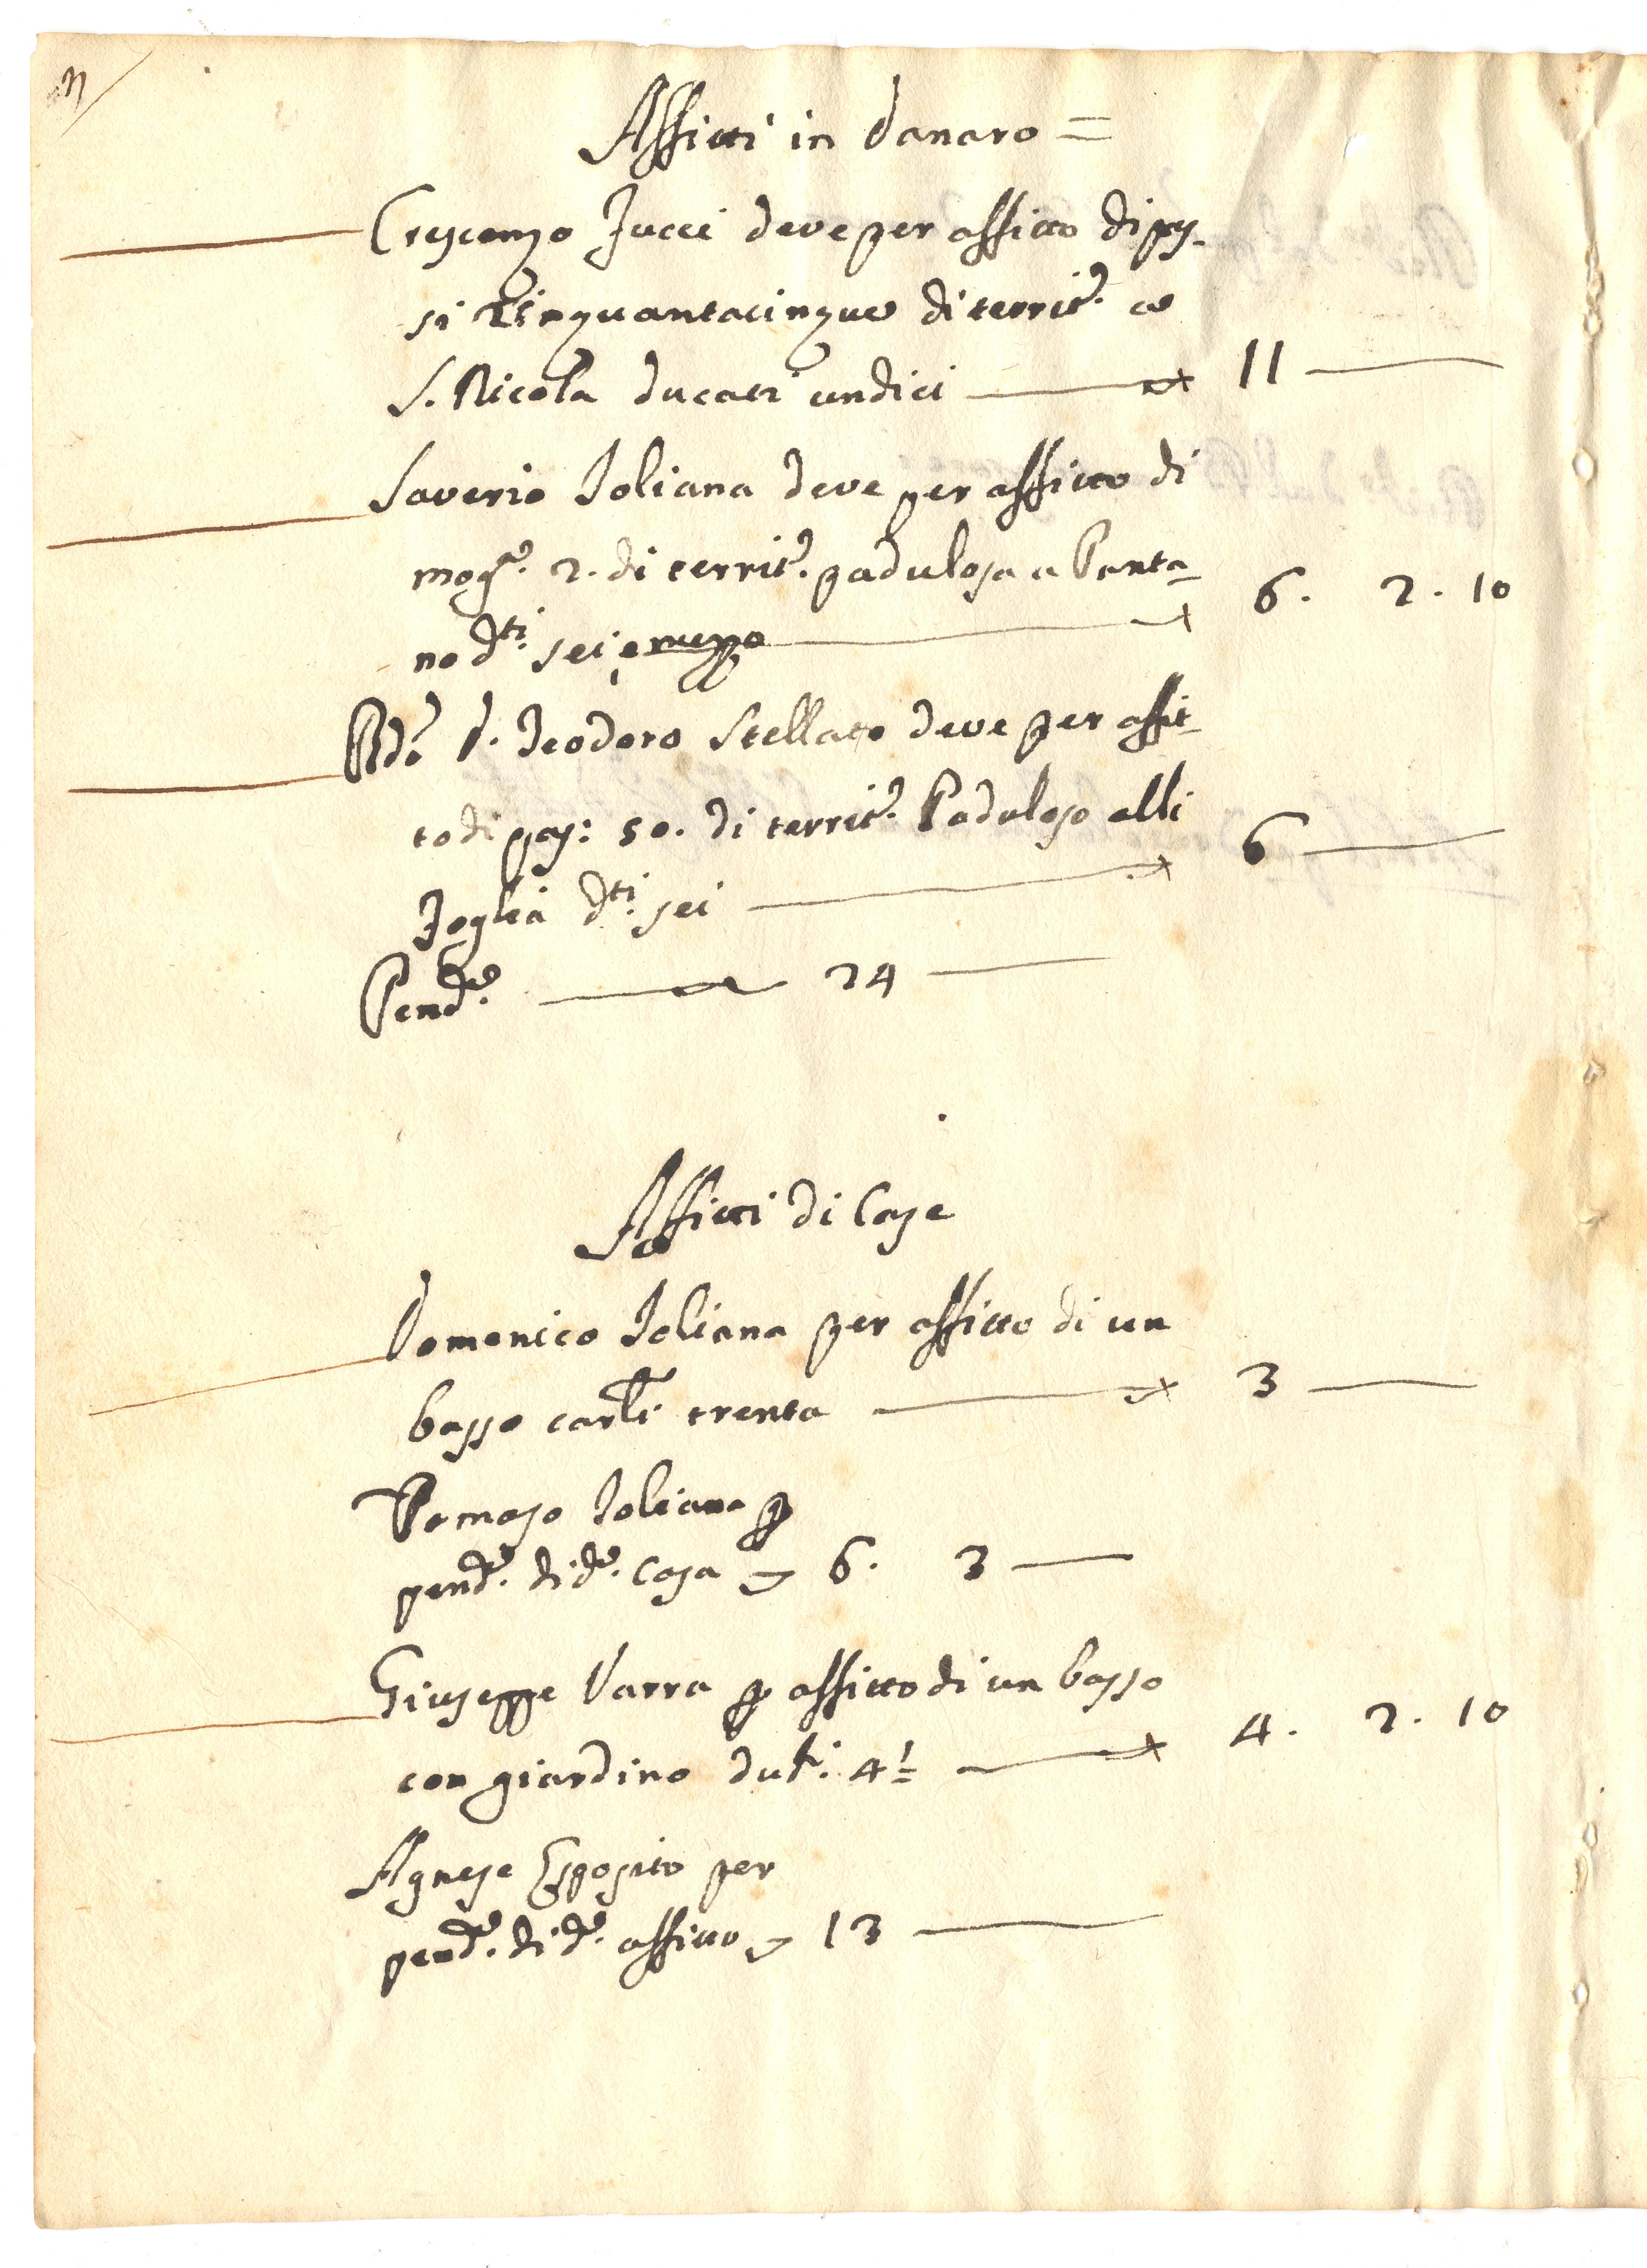 Affitti in danaro =
Crescenzo Jucci deve per affitto di pas-
si Cinquantacinque di territ.º a
S. Nicola ducati undici — 11 —
Saverio Ioliana deve per affitto di
mog.ª 2. di territ.º padulosa a Panta-
no d.ti sei, e mezzo — 6. 2. 10
Rdo D. Teodoro Stellato deve per affit-
to di pas: 50. di territ.º Paduloso alli
Joglia d.ti sei — 6 —
Pend.e — 24 —
Affitti di Case
Domenico Ioliana per affitto di un
basso carli trenta — 3 —
Tomaso Ioliana p
pend.e di d.a Casa — 6. 3 —
Giuseppe Varra p affitto di un basso
con giardino duti: 4½ — 4. 2. 10
Agnese Esposito per
pend.e di d.o affitto — 13 —